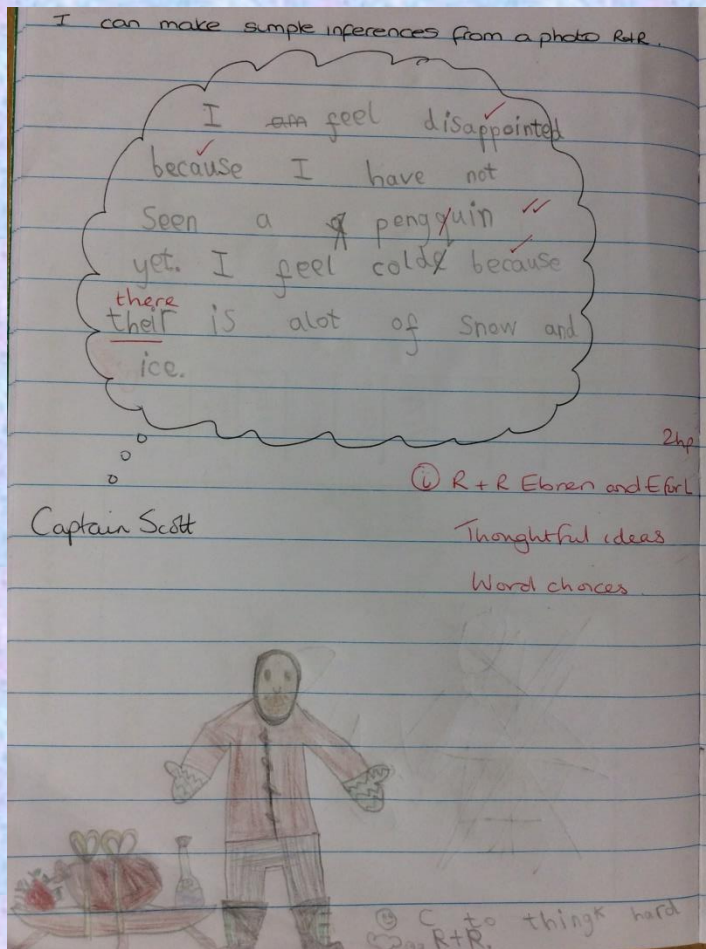 I can make simple inferences from a photo R+R.
I am feel disappointed
because I have not
Seen a pengquin
yet. I feel cold because
there
their is alot of Snow and
ice.
2hp
i R + R Ebren and Efurl
Captain Scott
Thoughtful ideas
Word choices
C to thingk hard
R+R.